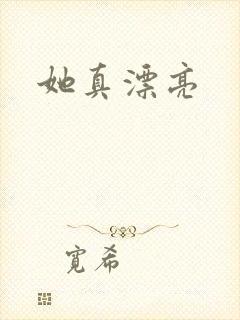 她真漂亮
寛希